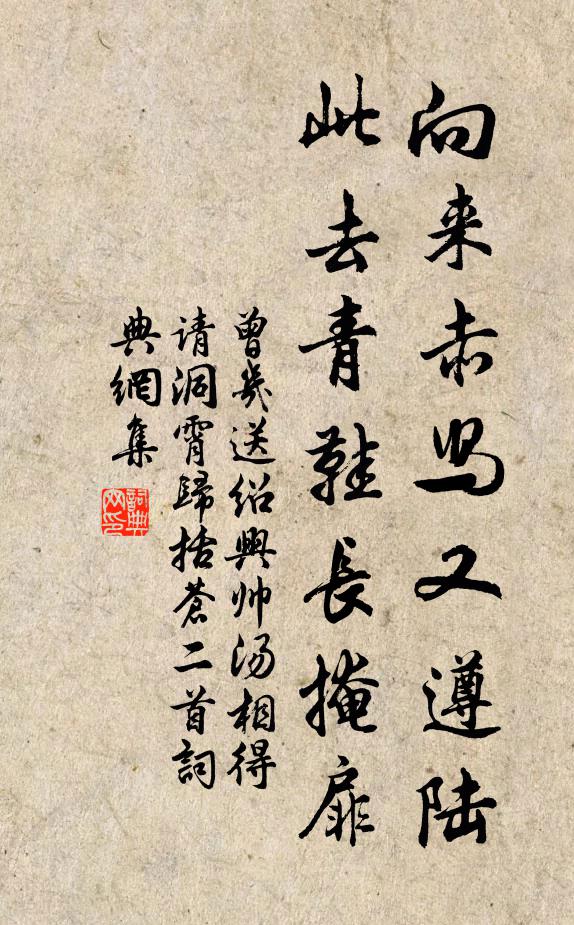 向来赤舄又遵陆
此去青鞋長掩扉
曾幾送绍興帅汤相得
请洞霄歸括蒼二首詞
典網集
詞典网印